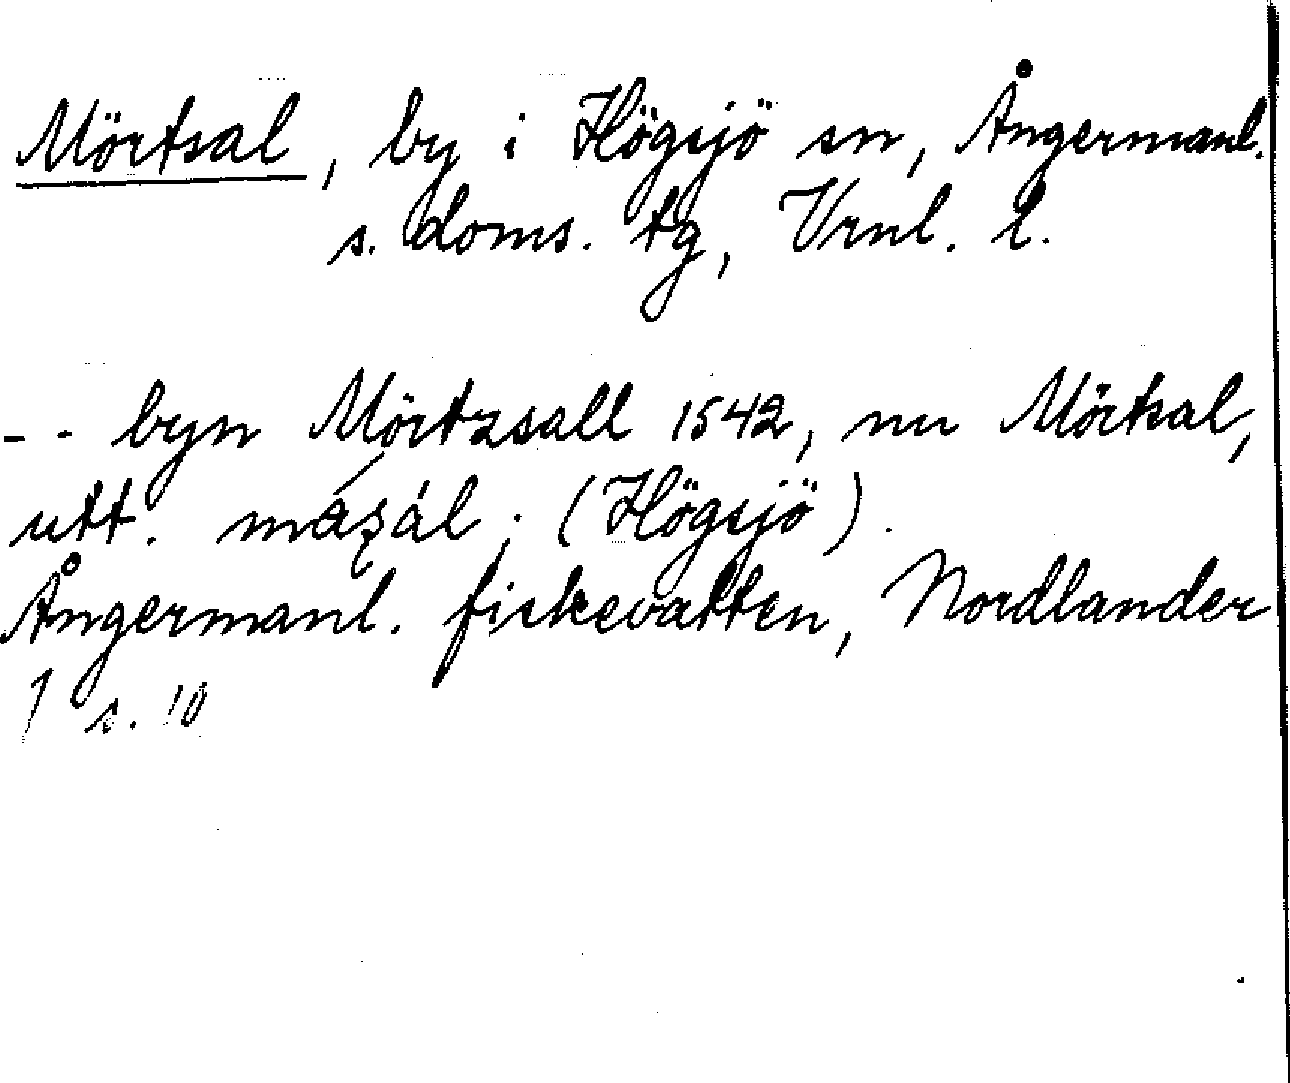 Mörtsal, by i Högsjö sn, Ångermanl.
s. doms. tg, Vrnl. l.
-- byn Mörtzsall 1542, nu Mörtsal,
utt. (Högsjö).
Ångermanl. fiskevatten, Nordlander
s. 10